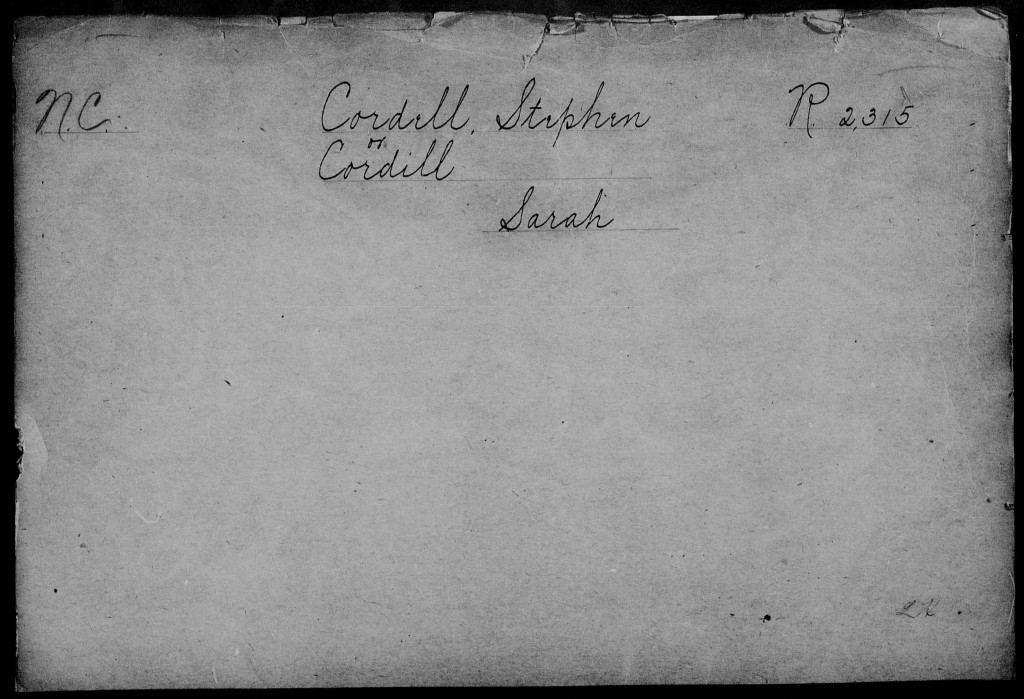 N.C. Cordell, Stephen R 2,315
or
Cordill
Sarah